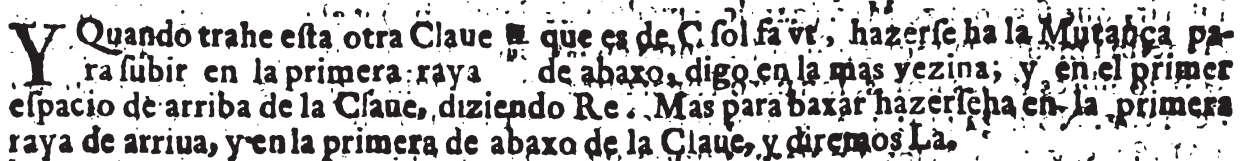 Y Quando trahe eſta otra Claue que es de C ſol fa vt, hazerſe ha la Mutança pa-
ra ſubir en la primera raya de abaxo, digo en la mas vezina; y en el primer
eſpacio de arriba de la Claue, diziendo Re. Mas para baxar hazerſeha en la primera
raya de arriua, y en la primera de abaxo de la Claue, y diremos La.